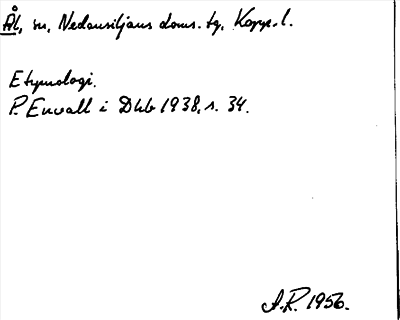 Ål, sn, Nedansiljans doms. tg, Kopp. l.
Etymologi.
P. Envall i Dhb 1938, s. 34.
A.R. 1956.